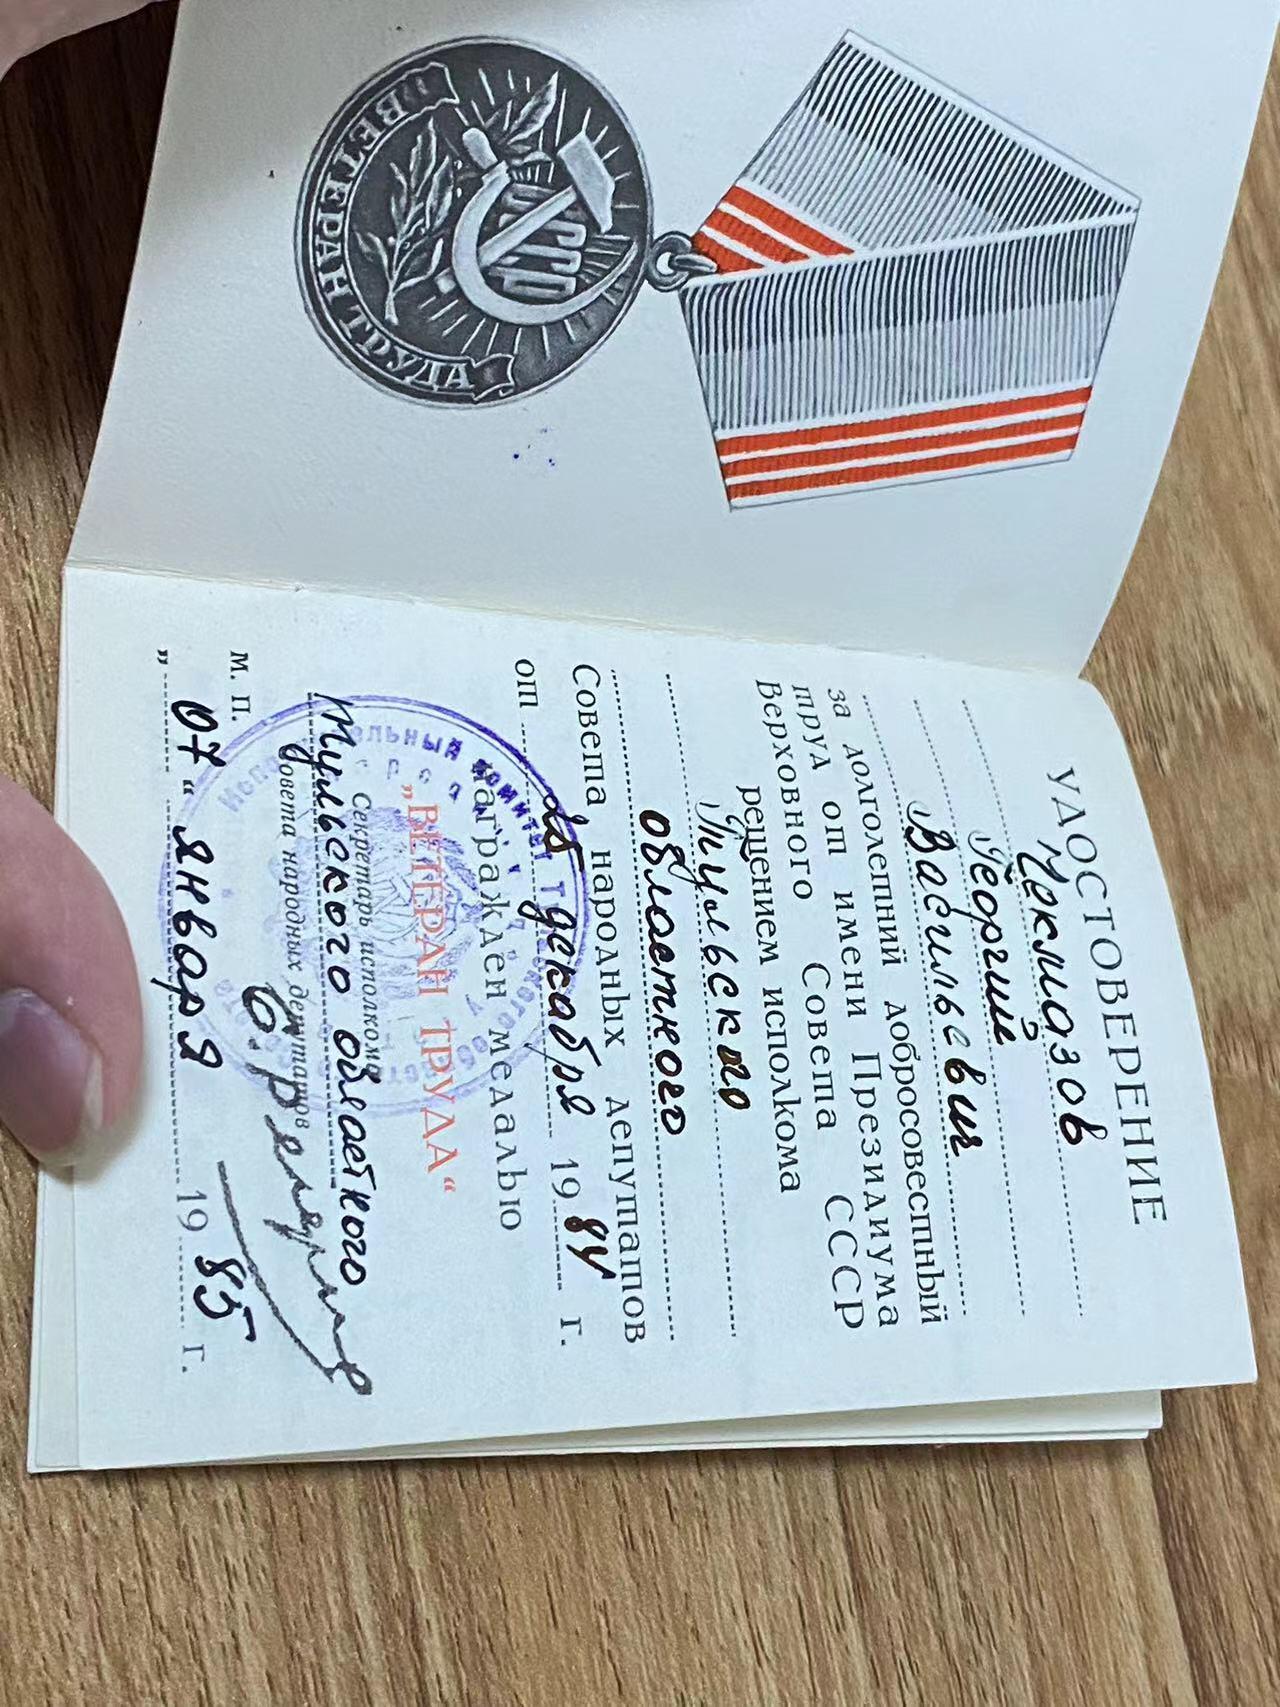 ВЕТЕРАН ТРУДА
СССР
УДОСТОВЕРЕНИЕ
Чекмазов
Георгий
Васильевич
за долголетний добросовестный
труд от имени Президиума
Верховного Совета СССР
решением исполкома
Тульского
областного
Совета народных депутатов
от 25 декабря 1984 г.
награжден медалью
„ВЕТЕРАН ТРУДА“
Тульского областного
Секретарь исполкома
Совета народных депутатов
М. П.
„07“ января 1985 г.